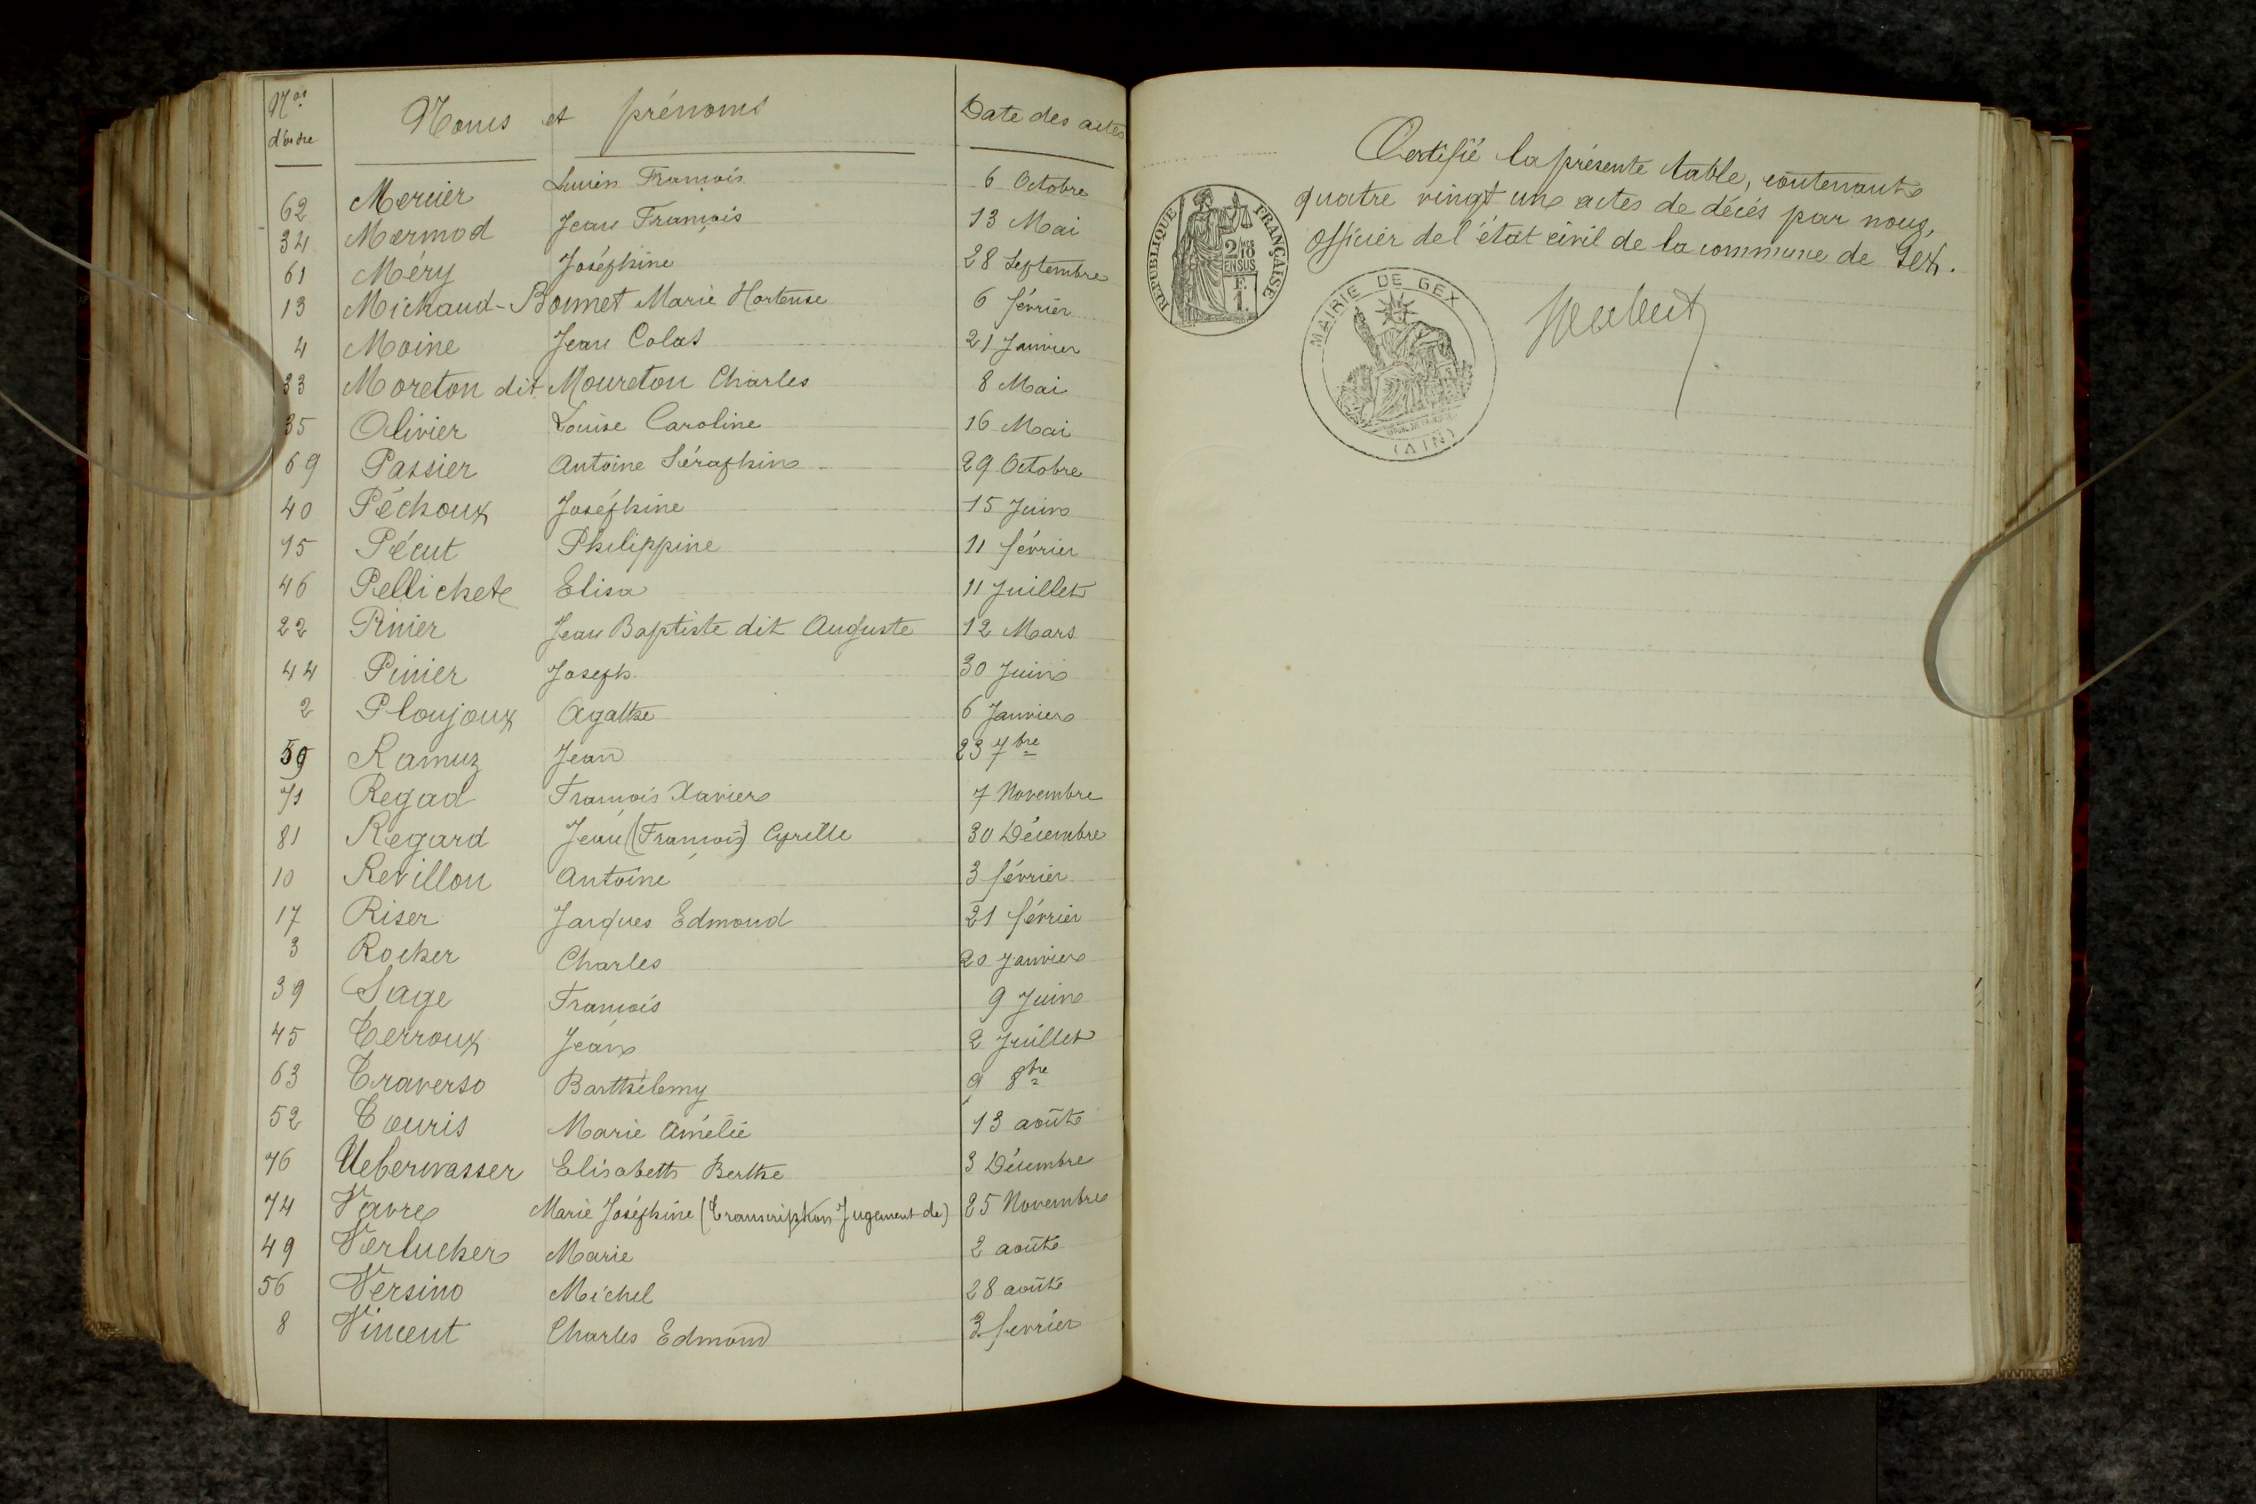 Nos d'ordre Noms et prénoms Date des actes
62 Mercier Lucien François 6 Octobre
34 Mermod Jean François 13 Mai
61 Méry Joséphine 28 Septembre
13 Michaud-Bonnet Marie Hortense 6 février
4 Moine Jean Colas 21 Janvier
33 Moreton dit Moureton Charles 8 Mai
35 Olivier Louise Caroline 16 Mai
69 Passier Antoine Séraphin 29 Octobre
40 Péchoux Joséphine 15 Juin
15 Pécut Philippine 11 février
46 Pellichet Elisa 11 Juillet
22 Pinier Jean Baptiste dit Auguste 12 Mars
44 Pinier Joseph 30 Juin
2 Ploujoux Agathe 6 Janvier
59 Ramuz Jean 23 7bre
71 Regad François Xavier 7 Novembre
81 Regard Jean (François) Cyrille 30 Décembre
10 Revillon Antoine 3 février
17 Riser Jacques Edmond 21 février
3 Rocker Charles 20 Janvier
39 Sage François 9 Juin
45 Terroux Jean 2 Juillet
63 Traverso Barthélemy 9 8bre
52 Touris Marie Amélie 13 août
76 Ueberwasser Elisabeth Berthe 3 Décembre
74 Vavre Marie Joséphine (Transcription Jugement de) 25 Novembre
49 Verlucker Marie 2 août
56 Versino Michel 28 août
8 Vincent Charles Edmond 3 février
Certifié la présente table, contenant
quatre vingt un actes de décés par nous,
Officier de l'état civil de la commune de Gex.
RÉPUBLIQUE FRANÇAISE
2/10 EN SUS
1 F.
MAIRIE DE GEX
(AIN)